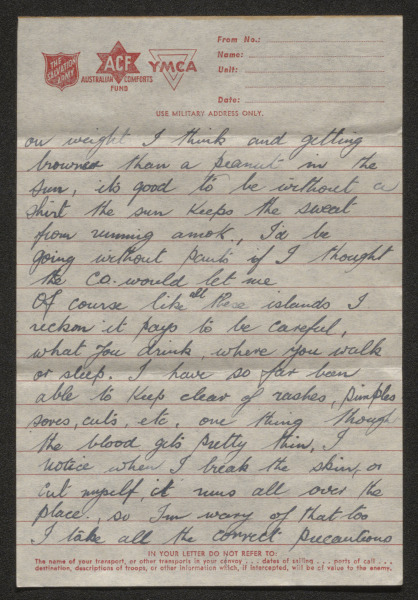 THE SALVATION ARMY
ACF
AUSTRALIAN COMFORTS FUND
YMCA
From No.:
Name:
Unit:
Date:
USE MILITARY ADDRESS ONLY.
on weight I think and getting
browned than a peanut in the
sun, its good to be without a
shirt the sun keeps the sweat
from running amok, I'd be
going without pants if I thought
the Co. would let me
Of course like all these islands I
reckon it pays to be careful,
what you drink, where you walk
or sleep, I have so far been
able to keep clear of rashes, pimples
sores, cuts, etc, one thing though
the blood gets pretty thin, I
notice when I break the skin, or
cut myself, it runs all over the
place, so I'm wary of that too
I take all the correct precautions
IN YOUR LETTER DO NOT REFER TO:
The name of your transport, or other transports in your convoy . . . dates of sailing . . . ports of call . . .
destination, descriptions of troops, or other information which, if intercepted, will be of value to the enemy.